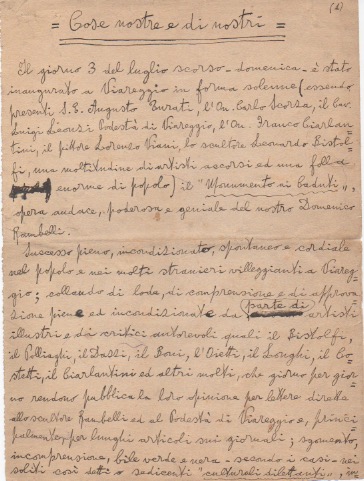 (1)
= Cose nostre e di nostri =
Il giorno 3 del luglio scorso - domenica - è stato
inaugurato a Viareggio in forma solenne (essendo
presenti S.E. Augusto Turati, l'On. Carlo Scorza, il Cav.
Luigi Leonzi Podestà di Viareggio, l'On. Franco Ciarlan-
tini, il pittore Lorenzo Viani, lo scultore Leonardo Bistol-
fi, una moltitudine di artisti accorsi ed una folla
enorme di popolo) il "Monumento ai Caduti",
opera audace, poderosa e geniale del nostro Domenico
Rambelli.
Successo pieno, incondizionato, spontaneo e cordiale
nel popolo e nei molti stranieri villeggianti a Viareg-
gio; collaudo di lode, di comprensione e di approva
zione piene ed incondizionate da parte di artisti
illustri e da critici autorevoli quali il Bistolfi,
il Pogliaghi, il Dazzi, il Boni, l'Ojetti, il Longhi, il Co-
stetti, il Ciarlantini ed altri molti, che giorno per gior
no rendono pubblica la loro opinione per lettere dirette
allo scultore Rambelli ed al Podestà di Viareggio e, princi
palmente, per lunghi articoli sui giornali; sgomento,
incomprensione, bile verde e nera - secondo i casi - nei
soliti così detti o sedicenti "culturali dilettanti",